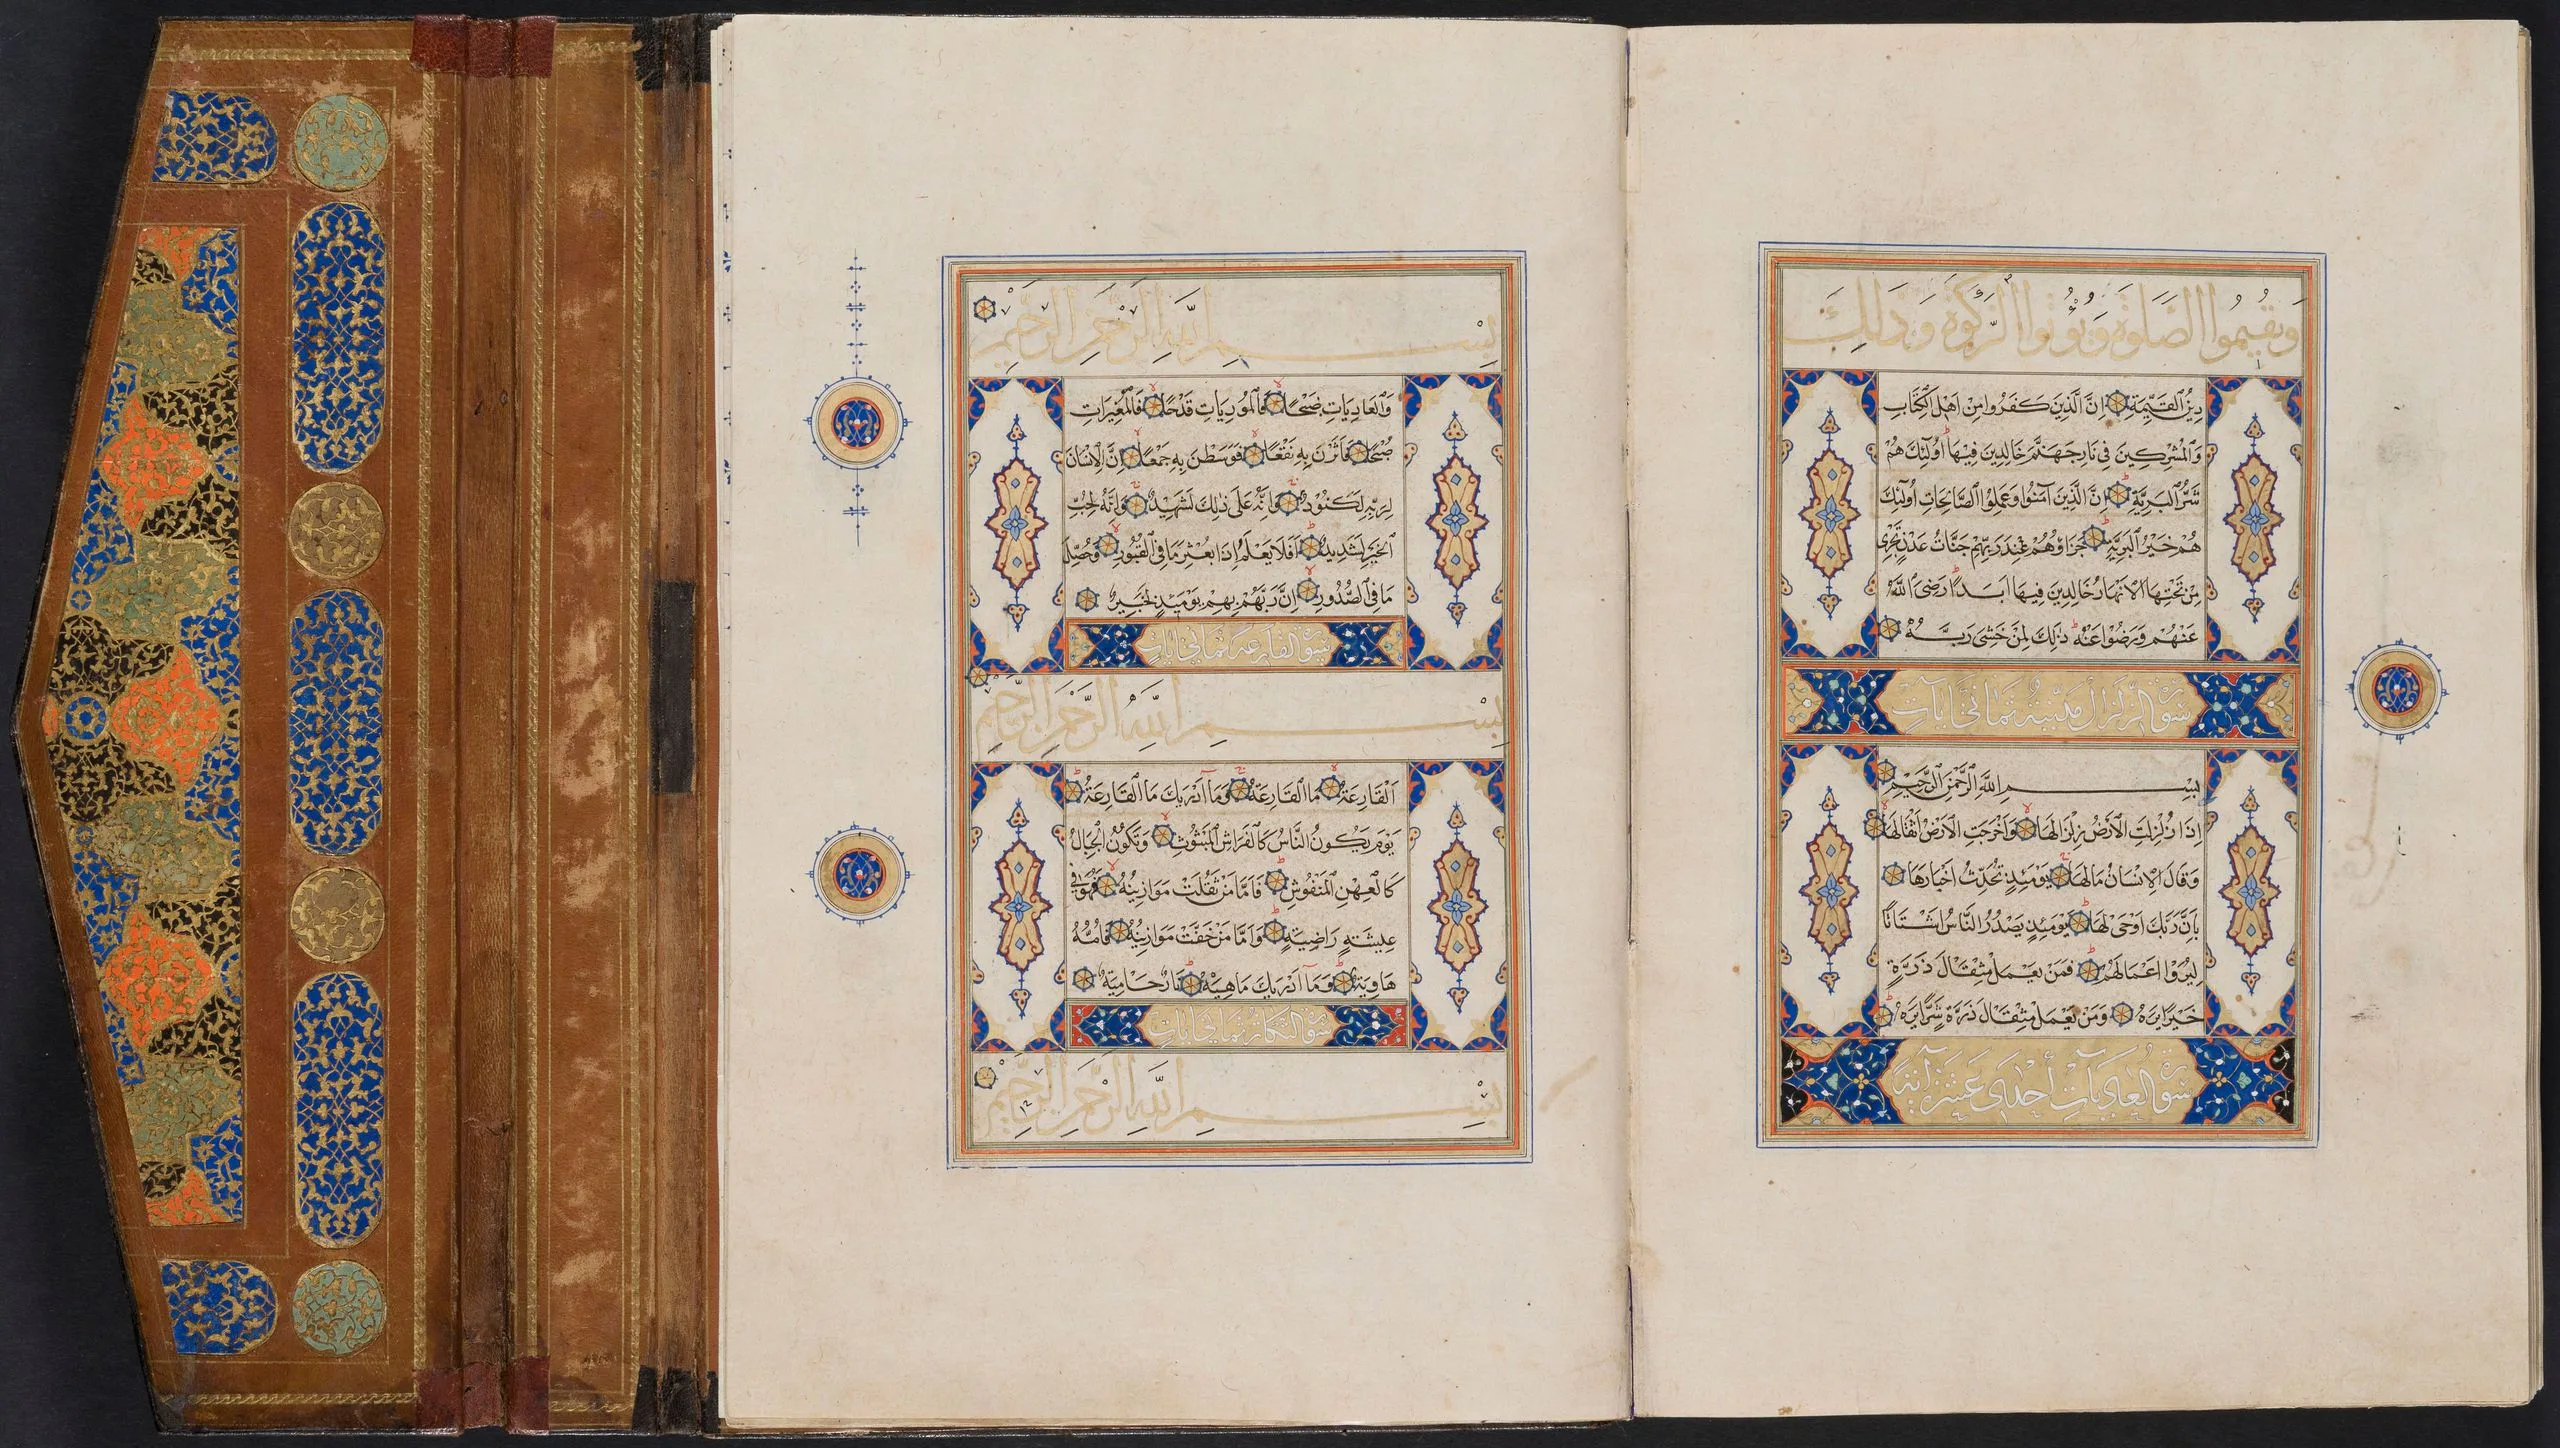 وَيُقِيمُوا الصَّلَوٰةَ وَيُؤْتُوا الزَّكَوٰةَ وَذَٰلِكَ
دِينُ الْقَيِّمَةِ اِنَّ الَّذِينَ كَفَرُوا مِنْ اَهْلِ الْكِتَابِ
وَالْمُشْرِكِينَ فِي نَارِ جَهَنَّمَ خَالِدِينَ فِيهَا اُولَٰئِكَ هُمْ
شَرُّ الْبَرِيَّةِ اِنَّ الَّذِينَ آمَنُوا وَعَمِلُوا الصَّالِحَاتِ اُولَٰئِكَ
هُمْ خَيْرُ الْبَرِيَّةِ جَزَاؤُهُمْ عِنْدَ رَبِّهِمْ جَنَّاتُ عَدْنٍ تَجْرِي
مِنْ تَحْتِهَا الْاَنْهَارُ خَالِدِينَ فِيهَا اَبَدًا رَضِيَ اللّٰهُ
عَنْهُمْ وَرَضُوا عَنْهُ ذَٰلِكَ لِمَنْ خَشِيَ رَبَّهُ
سورة الزلزال مدنية ثماني ايات
بِسْمِ اللّٰهِ الرَّحْمٰنِ الرَّحِيمِ
اِذَا زُلْزِلَتِ الْاَرْضُ زِلْزَالَهَا وَاَخْرَجَتِ الْاَرْضُ اَثْقَالَهَا
وَقَالَ الْاِنْسَانُ مَا لَهَا يَوْمَئِذٍ تُحَدِّثُ اَخْبَارَهَا
بِاَنَّ رَبَّكَ اَوْحَىٰ لَهَا يَوْمَئِذٍ يَصْدُرُ النَّاسُ اَشْتَاتًا
لِيُرَوْا اَعْمَالَهُمْ فَمَنْ يَعْمَلْ مِثْقَالَ ذَرَّةٍ
خَيْرًا يَرَهُ وَمَنْ يَعْمَلْ مِثْقَالَ ذَرَّةٍ شَرًّا يَرَهُ
سورة العاديات أحدى عشر آية
بِسْمِ اللّٰهِ الرَّحْمٰنِ الرَّحِيمِ
وَالْعَادِيَاتِ ضَبْحًا فَالْمُورِيَاتِ قَدْحًا فَالْمُغِيرَاتِ
صُبْحًا فَاَثَرْنَ بِهِ نَقْعًا فَوَسَطْنَ بِهِ جَمْعًا اِنَّ الْاِنْسَانَ
لِرَبِّهِ لَكَنُودٌ وَاِنَّهُ عَلَىٰ ذَٰلِكَ لَشَهِيدٌ وَاِنَّهُ لِحُبِّ
الْخَيْرِ لَشَدِيدٌ اَفَلَا يَعْلَمُ اِذَا بُعْثِرَ مَا فِي الْقُبُورِ وَحُصِّلَ
مَا فِي الصُّدُورِ اِنَّ رَبَّهُمْ بِهِمْ يَوْمَئِذٍ لَخَبِيرٌ
سورة القارعة ثماني ايات
بِسْمِ اللّٰهِ الرَّحْمٰنِ الرَّحِيمِ
اَلْقَارِعَةُ مَا الْقَارِعَةُ وَمَا اَدْرٰيكَ مَا الْقَارِعَةُ
يَوْمَ يَكُونُ النَّاسُ كَالْفَرَاشِ الْمَبْثُوثِ وَتَكُونُ الْجِبَالُ
كَالْعِهْنِ الْمَنْفُوشِ فَاَمَّا مَنْ ثَقُلَتْ مَوَازِينُهُ فَهُوَ فِي
عِيشَةٍ رَاضِيَةٍ وَاَمَّا مَنْ خَفَّتْ مَوَازِينُهُ فَاُمُّهُ
هَاوِيَةٌ وَمَا اَدْرٰيكَ مَاهِيَهْ نَارٌ حَامِيَةٌ
سورة التكاثر ثماني ايات
بِسْمِ اللّٰهِ الرَّحْمٰنِ الرَّحِيمِ